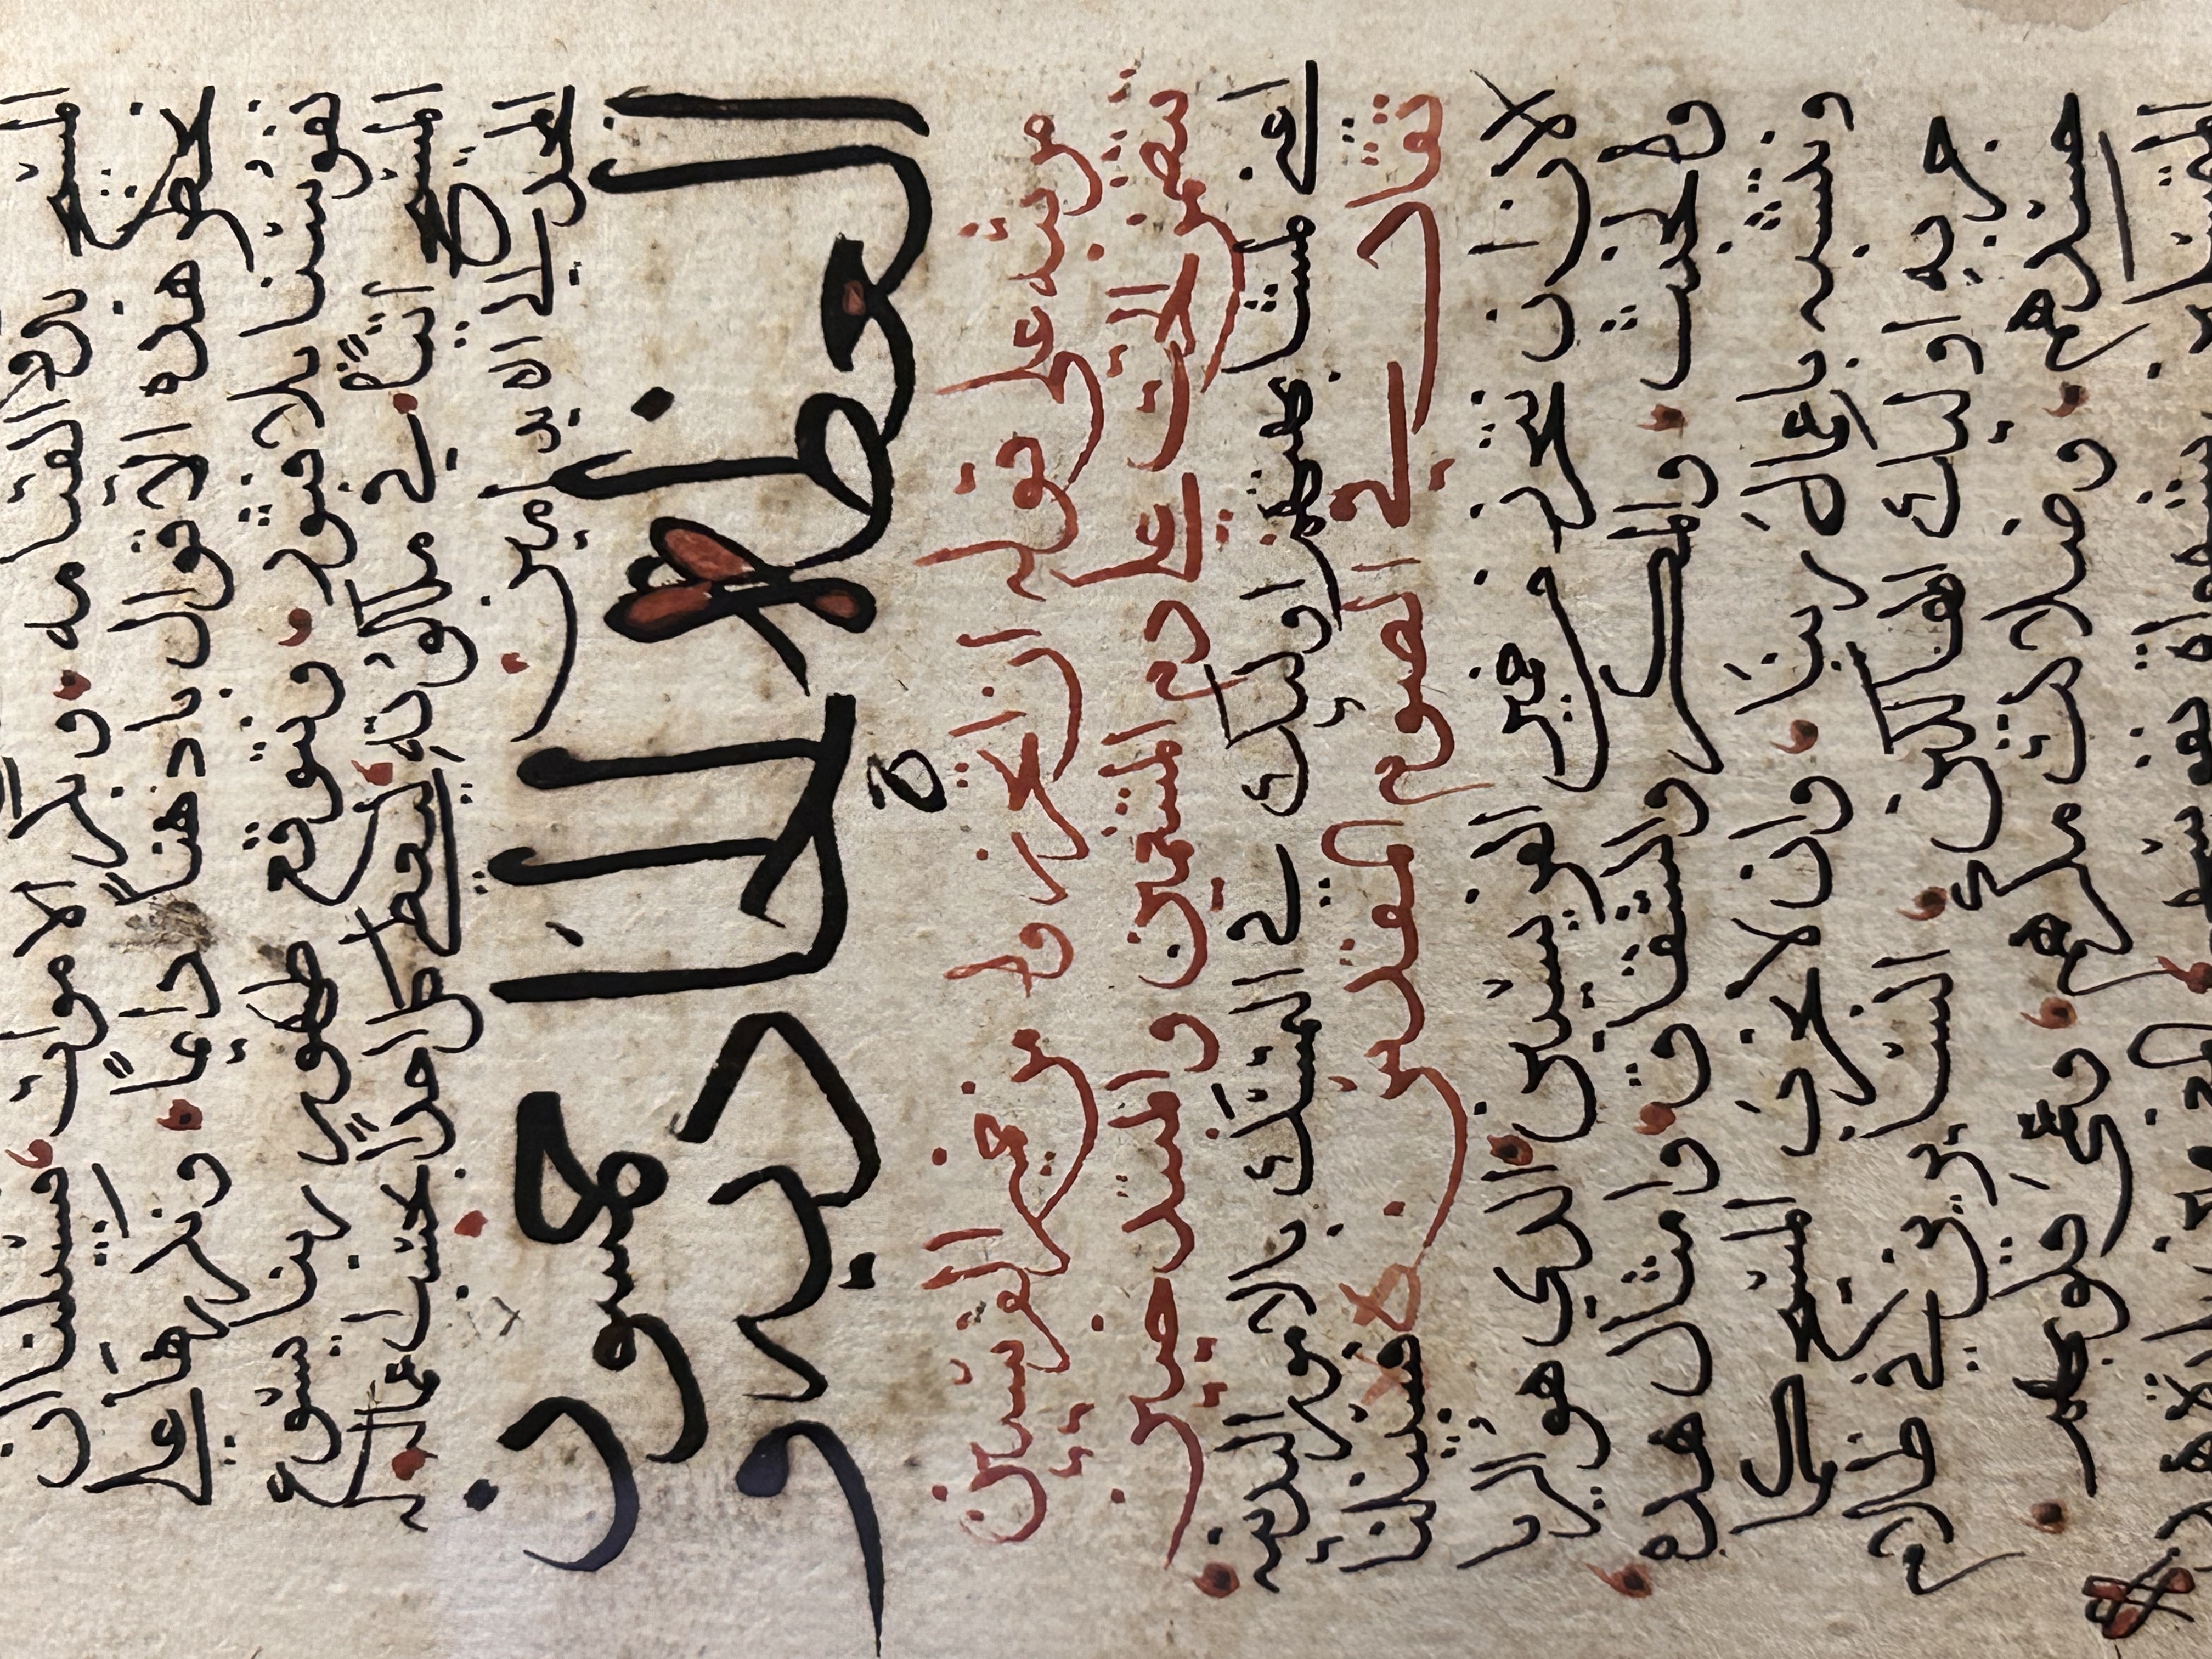 المسيح بدو القيامه . وبكر الاموات فسبيلنا ان
نحظر هده الاقوال باذهننا دايمًا . ونكررها علي
نفوسنا بلا فتور . ونتوقع ظهور ربنا يسوع
المسيح اتيًا في ملكوته ليعطي كل احدًا بحسب اعماله له
المجد الي الابد امين
العظه الحاديه و خمسون
مرتبه علي قوله ان اتحرزوا من خمير الفريسيين
تتضمن الحث علي دم المتنعمين والمبتدخيين
اعني لمشابهتهم اوليك في التمسك بالامور البدنيه
تقال في الصوم المقدس فسبيلنا
الان ان نتحرز من خمير الفريسيين الدي هو الريا
والخبث . والمكر والشقاق وامثال هده
ونتشبه باعمال ربنا . وان لا نجرب المسيح كما
جربه اوليك الهالكين السايرين في ظلام
حسدهم . وضلالت مكرهم وعمي قلوبهم .
بشهواة نفوسهم